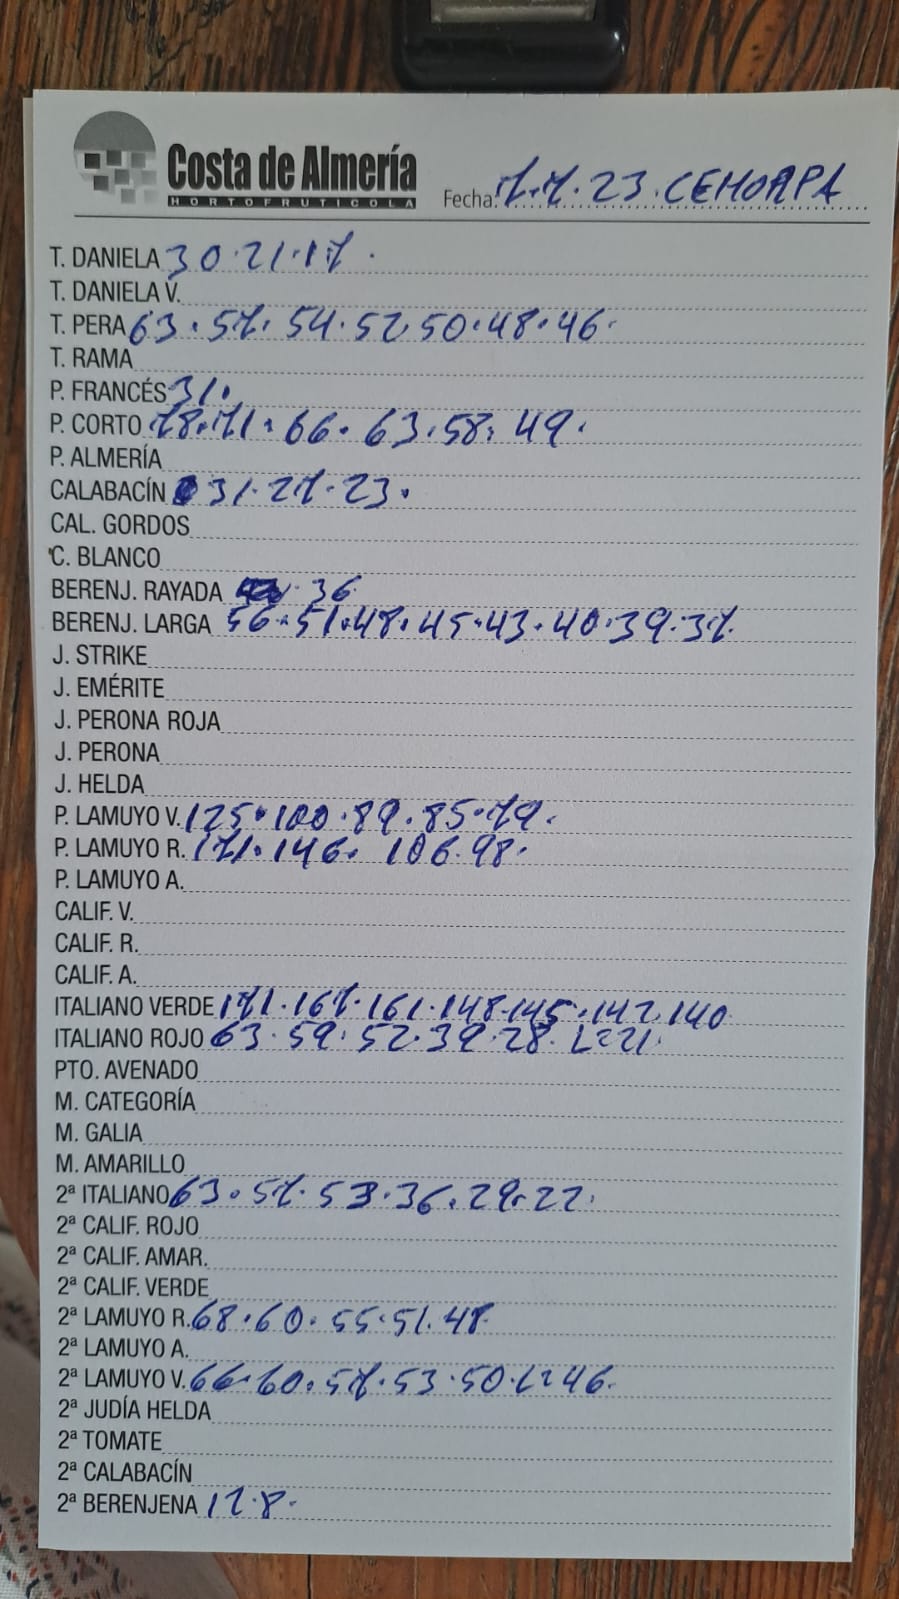 Costa de Almería
HORTOFRUTICOLA
Fecha: 7.7.23. CEHORPA
T. DANIELA 30.21.17.
T. DANIELA V.
T. PERA 63.57.54.52 50.48.46.
T. RAMA
P. FRANCÉS 31.
P. CORTO 78.71.66.63.58.49.
P. ALMERÍA
CALABACÍN 31.27.23.
CAL. GORDOS
C. BLANCO
BERENJ. RAYADA 36
BERENJ. LARGA 56.51.48.45.43.40.39.37.
J. STRIKE
J. EMÉRITE
J. PERONA ROJA
J. PERONA
J. HELDA
P. LAMUYO V. 125.100.89.85.79.
P. LAMUYO R. 171.146.106.98.
P. LAMUYO A.
CALIF. V.
CALIF. R.
CALIF. A.
ITALIANO VERDE 171.167.161.148.145.142.140
ITALIANO ROJO 63.59.52.39.28. L=21.
PTO. AVENADO
M. CATEGORÍA
M. GALIA
M. AMARILLO
2ª ITALIANO 63.57.53.36.29.22.
2ª CALIF. ROJO
2ª CALIF. AMAR.
2ª CALIF. VERDE
2ª LAMUYO R. 68.60.55.51.48
2ª LAMUYO A.
2ª LAMUYO V. 66.60.57.53.50.L=46.
2ª JUDÍA HELDA
2ª TOMATE
2ª CALABACÍN
2ª BERENJENA 12.8.